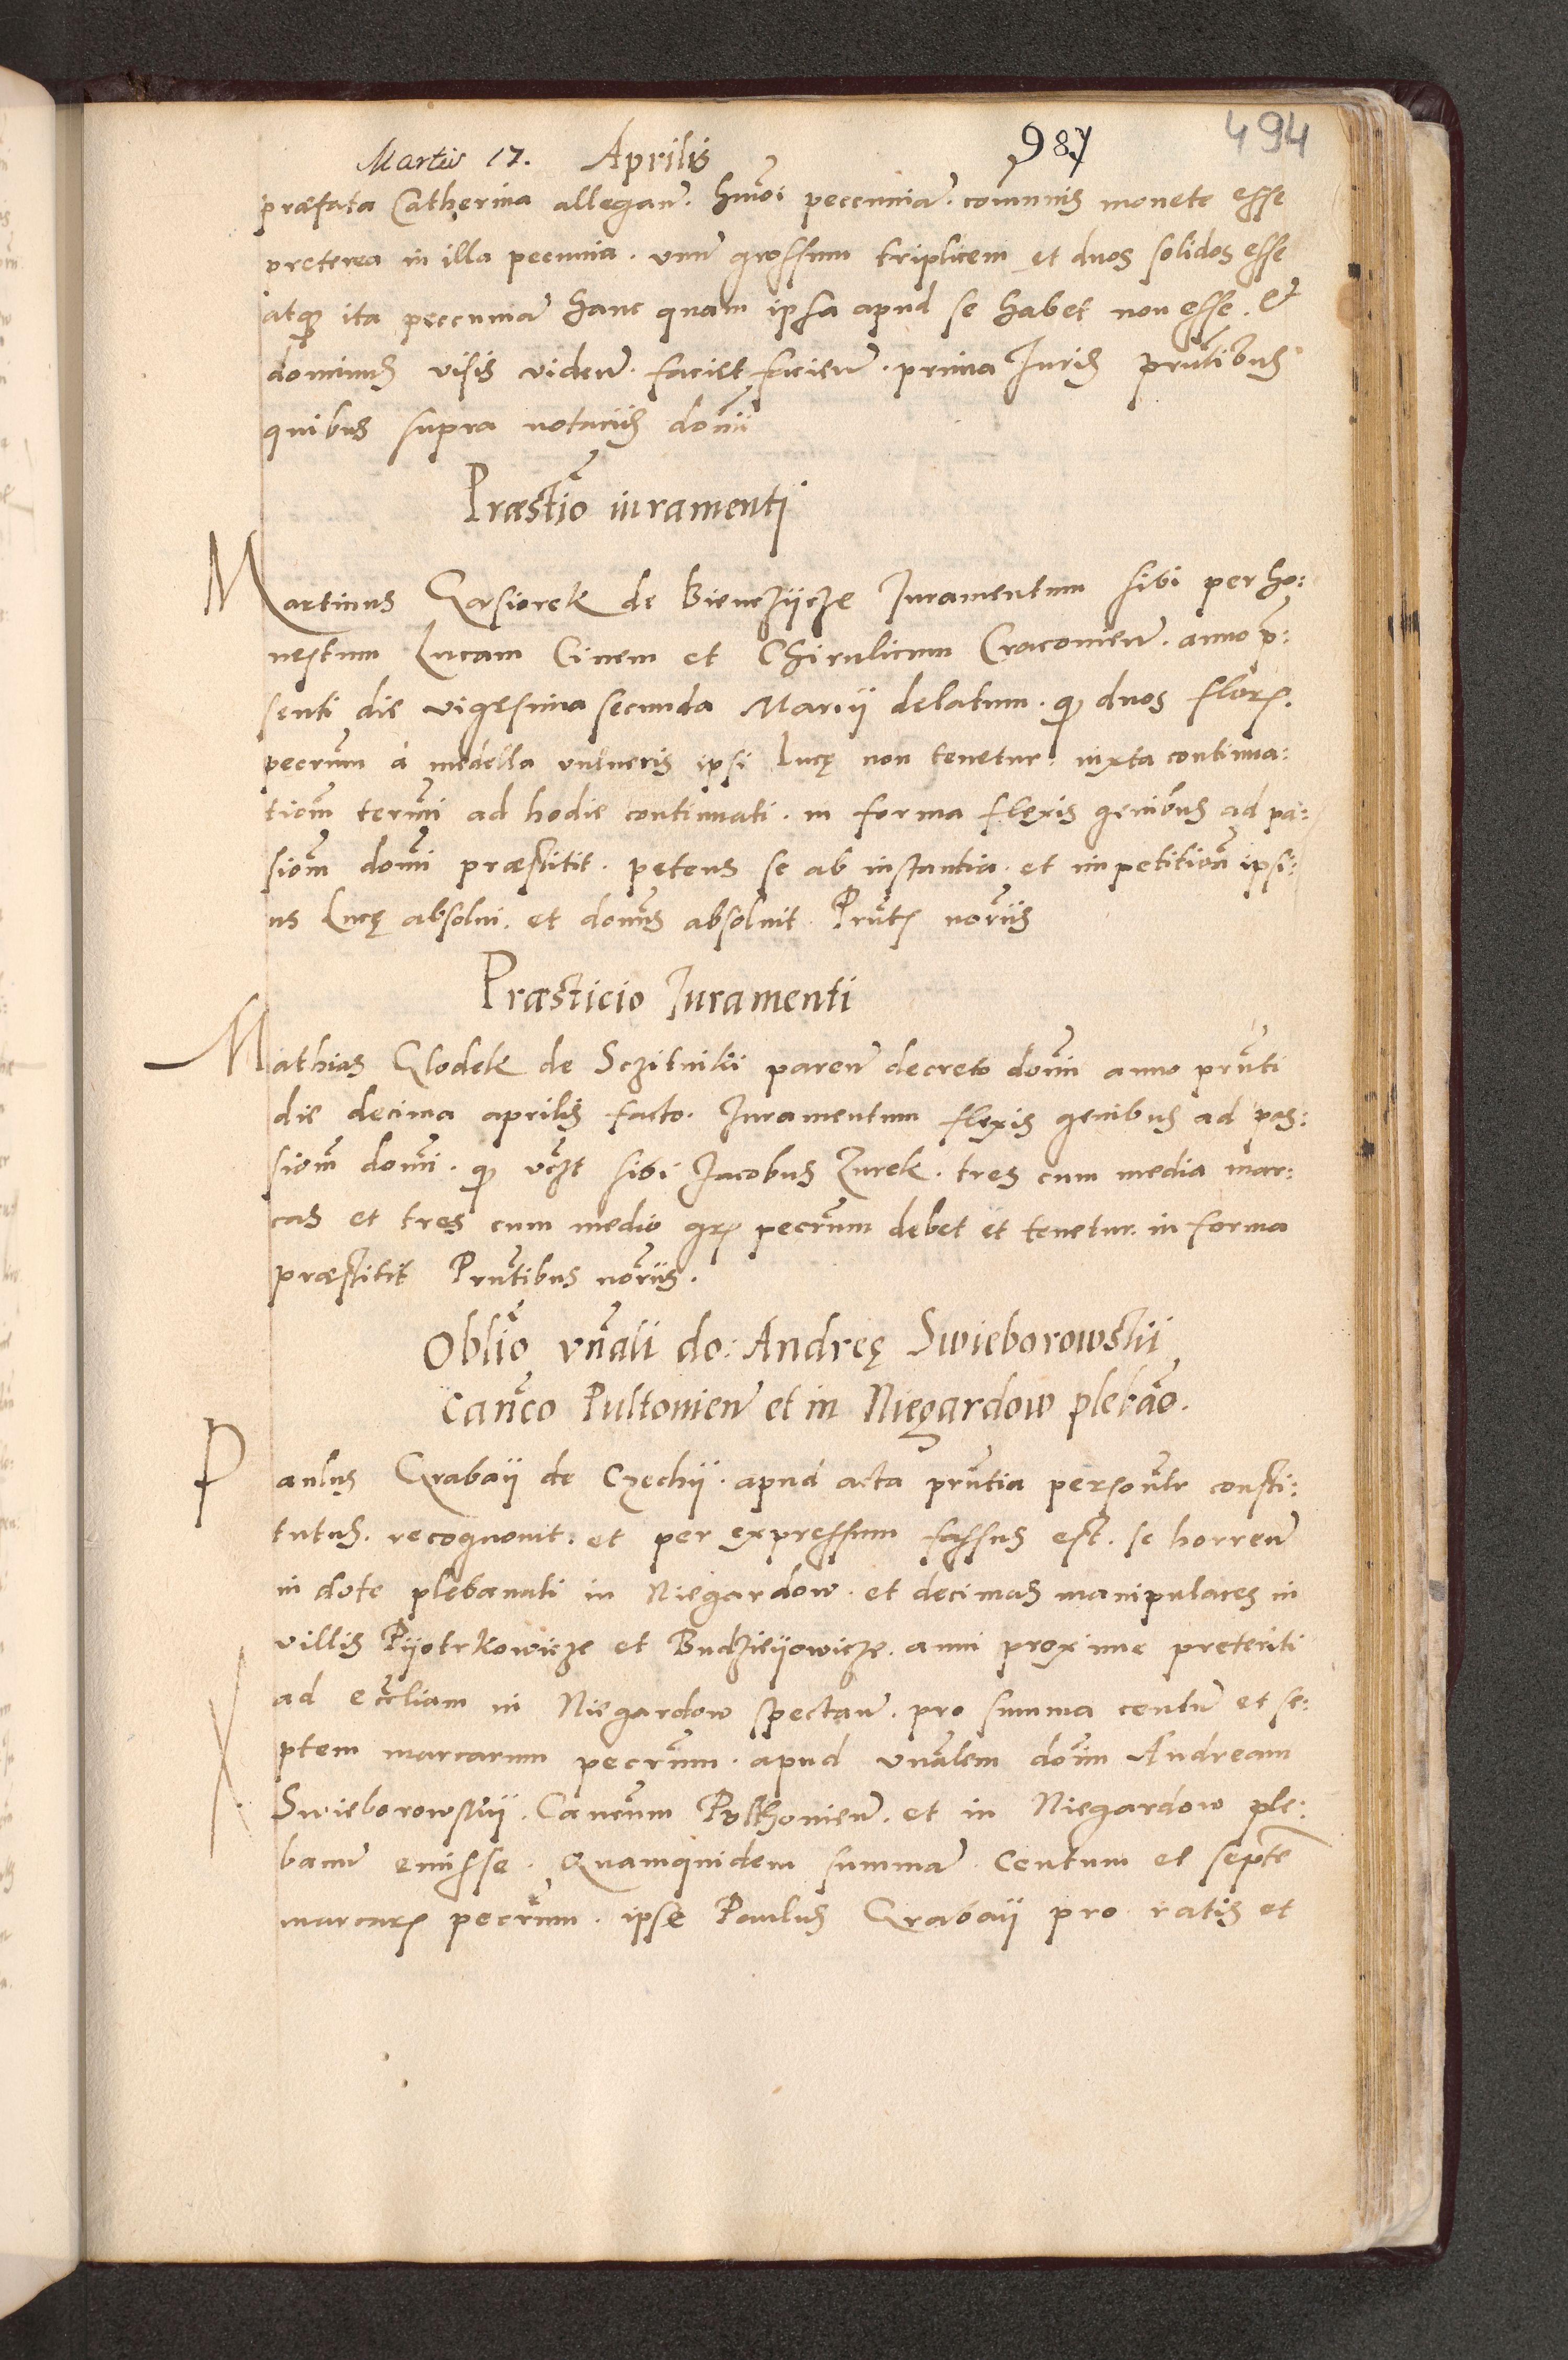 Martii 17. Aprilis 987 494
præfata Catherina allegan̄. hm̄oi peccuniā. com̄unis monete esse
preterea in illa pecunia. unū grossum triplicem et duos solidos esse
atq̃ ita peccuniā hanc quam ipsa apud se habet non esse. Et
dominus visis videñ. faciet facień. prima Juris prn̄tibus
quibus supra notariis domi
Præstiō iuramenti
Martinus Gąsiorek de Bienczÿcze Juramentum sibi per ho:
nestum Lucam Ciuem et Chirulicum Cracouień. anno p̄:
senti die vigesima secunda Marcii delatum. q̃ duos flor̃.
pecc̄rum à medella vulneris ipsi Lucę non tenetur. iuxta continua:
tiom̄ termi̅ ad hodie continuati. in forma flexis genibus ad pa:
siom̄ domi̅ præstitit. petens se ab instantia. et impetitiōn ipsi:
us Lucę absolui. et dom̄s absoluit Pn̄tƺ norīis
Præsticio Juramenti
Mathias Glodek de Sczitniki pareń decreto domi̅ anno prn̄ti
die decima aprilis facto. Juramentum flexis genibus ad pas:
siom̄ domi̅. q̃ vcz̄t sibi Jacobus Zurek. tres cum media mar:
cas et tres cum medio gr̃ pecc̄rum debet et tenetur. in forma
præstitit Prn̄tibus norīis.
Obliō vn̄ali do: Andreę Swieborowskii
Canc̄o Pultouień et in Niegardow plebāo.
Paulus Grabaÿ de Czechÿ. apud acta prn̄tia person̄lr consti:
tutus. recognouit. et per expressum fassus est. se horreń
in dote plebanali in Niegardow. et decimas manipulares in
villis Pÿotrkowicze et Budzieÿowicze. anni proxime preteriti
ad eccl̄iam in Niegardow spectań. pro summa centū et se:
ptem marcarum pecc̄rum. apud vn̄alem dom̄ Andream
Swieborowskÿ. Canc̄um Polthouień. et in Niegardow ple:
banū emisse. Quamquidem summā. Centum et septē
marcar̃ pecc̄rum. ipse Paulus Grabaÿ pro ratis et